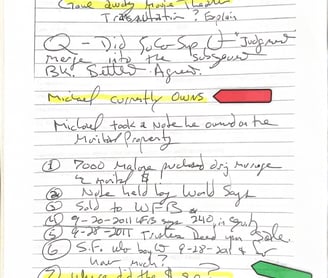 Gone away Movie Theater
Transaction? Explain
Q - Did SoCoSup Ct Judgment
merge into the subsequent
BK. Settle Agree.
Michael currently owns
Michael took a Note he owned on the
Property
① 7000 Malone purchased drg marriage
② Note held by World Savs
③ Sold to WFB
④ 9-20-2011 WFB says 240 in equity
⑤ 9-28-2011 Trustee Deed upon Sale.
⑥ S.F. who buy 9-28-2011 &
how much?
⑦ Where did the $ go?